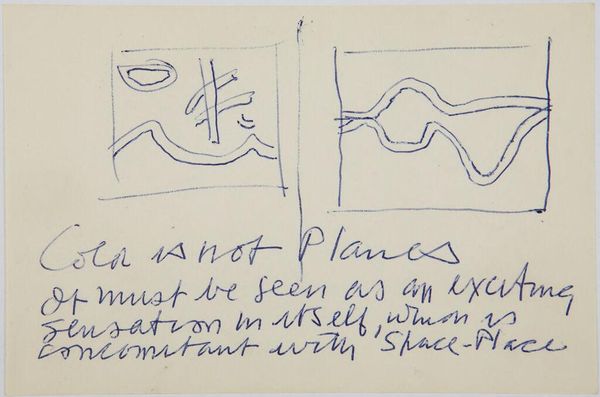 Color is not Planes
It must be seen as an exciting
sensation in itself, which is
concomitant with Space-Place